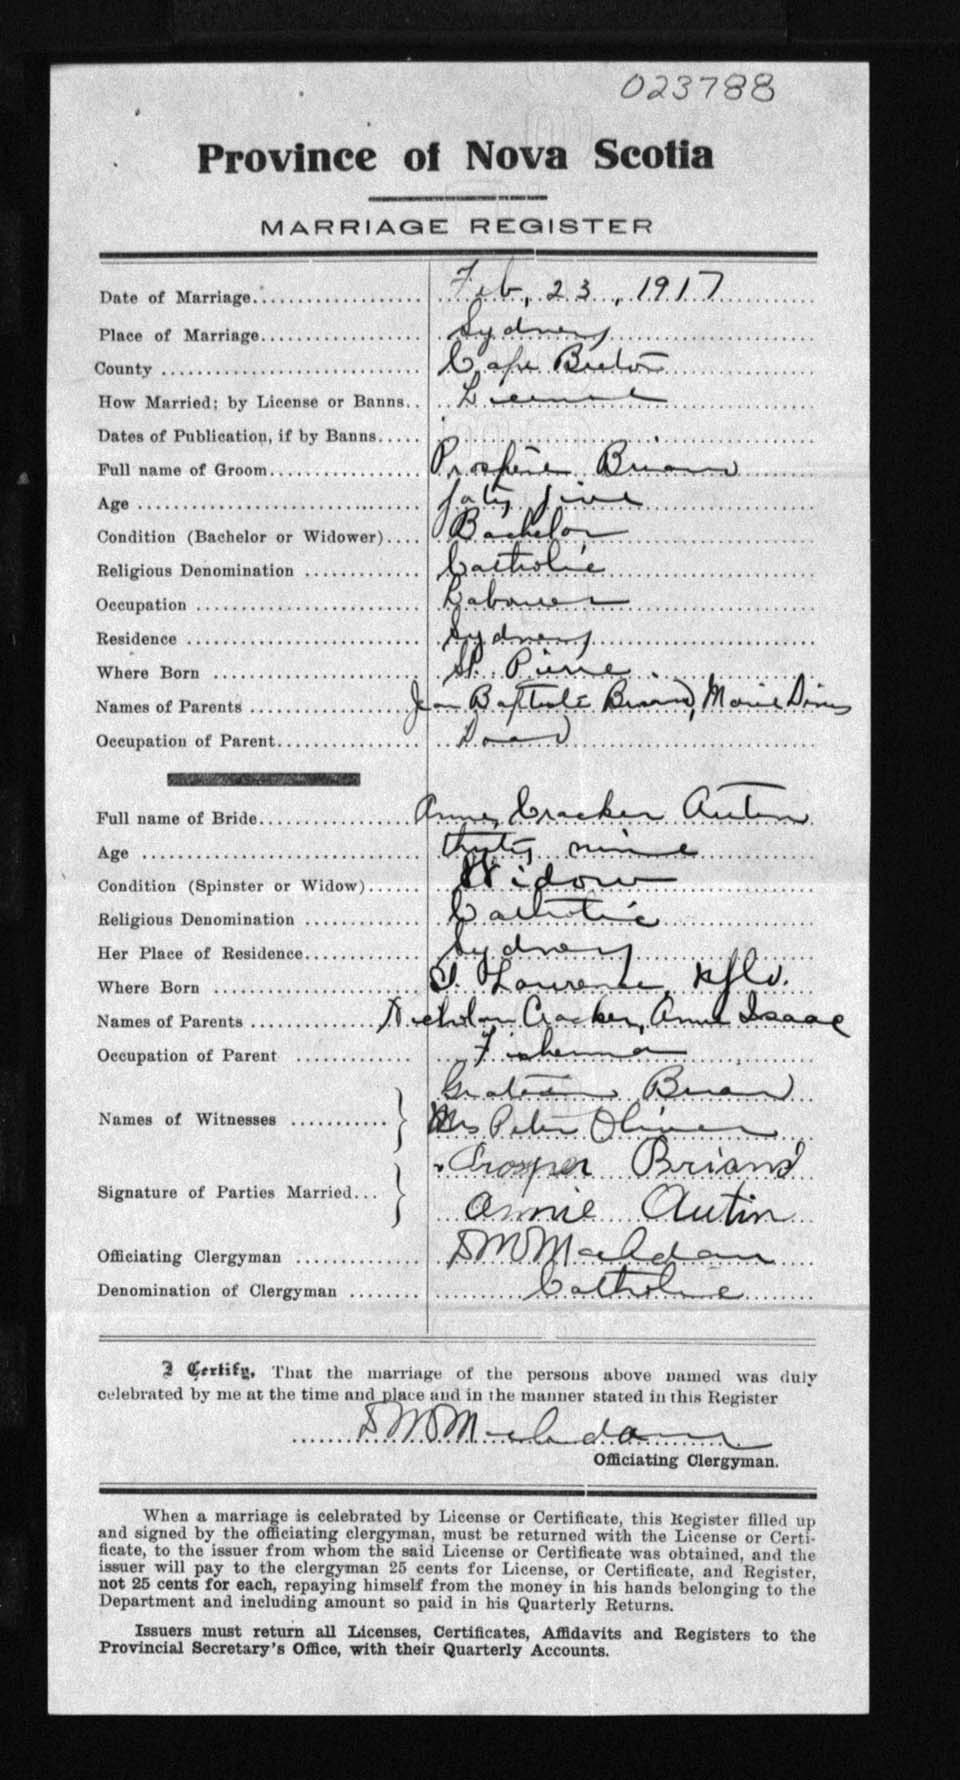 023788
Province of Nova Scotia
MARRIAGE REGISTER
Date of Marriage Feb, 23, 1917
Place of Marriage Sydney
County Cape Breton
How Married; by License or Banns License
Dates of Publication, if by Banns
Full name of Groom Prospère Briand
Age forty five
Condition (Bachelor or Widower) Bachelor
Religious Denomination Catholic
Occupation Labourer
Residence Sydney
Where Born St. Pierre
Names of Parents Jean Baptiste Briand, Marie
Occupation of Parent Dead
Full name of Bride Annie Cracker Autin
Age thirty nine
Condition (Spinster or Widow) Widow
Religious Denomination Catholic
Her Place of Residence Sydney
Where Born St. Lawrence, Nfld.
Names of Parents Nicholas Cracker, Annie Isaac
Occupation of Parent Fisherman
Names of Witnesses Briand
Mrs Peter Oliver
Signature of Parties Married Prosper Briand
Annie Autin
Officiating Clergyman
Denomination of Clergyman Catholic
I Certify, That the marriage of the persons above named was duly
celebrated by me at the time and place and in the manner stated in this Register
Officiating Clergyman.
When a marriage is celebrated by License or Certificate, this Register filled up
and signed by the officiating clergyman, must be returned with the License or Certi-
ficate, to the issuer from whom the said License or Certificate was obtained, and the
issuer will pay to the clergyman 25 cents for License, or Certificate, and Register,
not 25 cents for each, repaying himself from the money in his hands belonging to the
Department and including amount so paid in his Quarterly Returns.
Issuers must return all Licenses, Certificates, Affidavits and Registers to the
Provincial Secretary's Office, with their Quarterly Accounts.